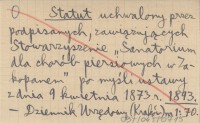 O Statut uchwalony przez
podpisanych, zawięzujących
Stowarzyszenie "Sanatorium
dla chorób piersiowych w Za-
kopanem" po myśli ustawy
z dnia 9 kwietnia 1873. 1893.
– Dziennik Urzędowy (Kraków) nr 1:70.